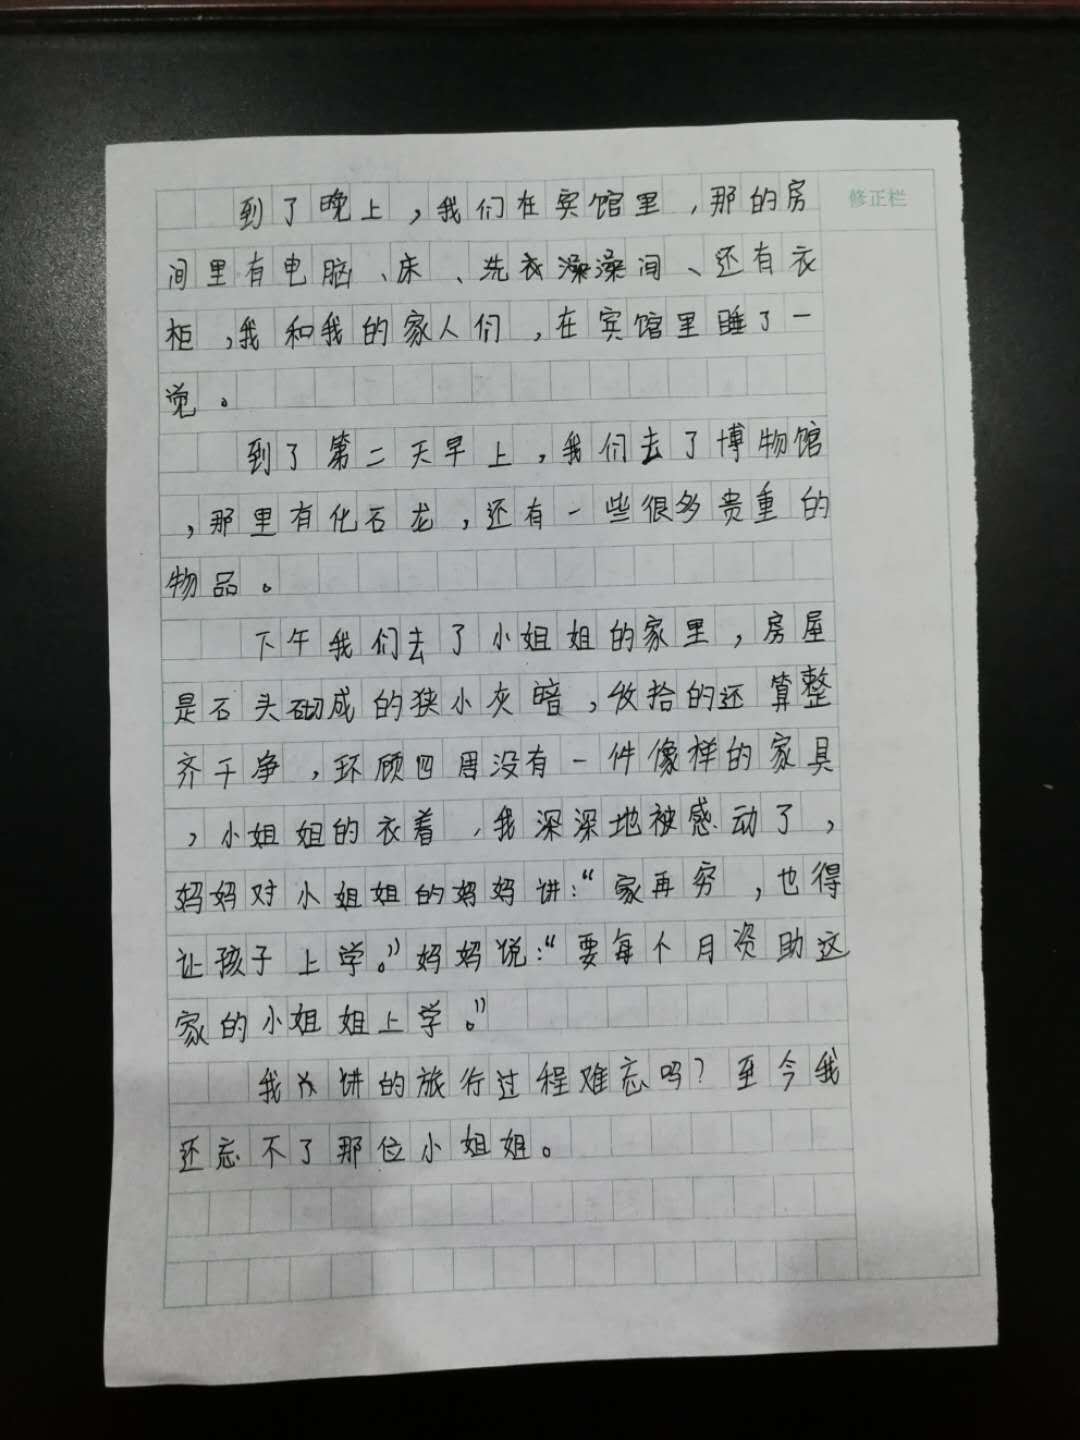 修正栏
到了晚上，我们在宾馆里，那的房
间里有电脑、床、洗衣澡澡间、还有衣
柜，我和我的家人们，在宾馆里睡了一
觉。
到了第二天早上，我们去了博物馆
，那里有化石龙，还有一些很多贵重的
物品。
下午我们去了小姐姐的家里，房屋
是石头砌成的狭小灰暗，收拾的还算整
齐干净，环顾四周没有一件像样的家具
，小姐姐的衣着，我深深地被感动了，
妈妈对小姐姐的妈妈讲：“家再穷，也得
让孩子上学。”妈妈说：“要每个月资助这
家的小姐姐上学。”
我讲的旅行过程难忘吗？至今我
还忘不了那位小姐姐。